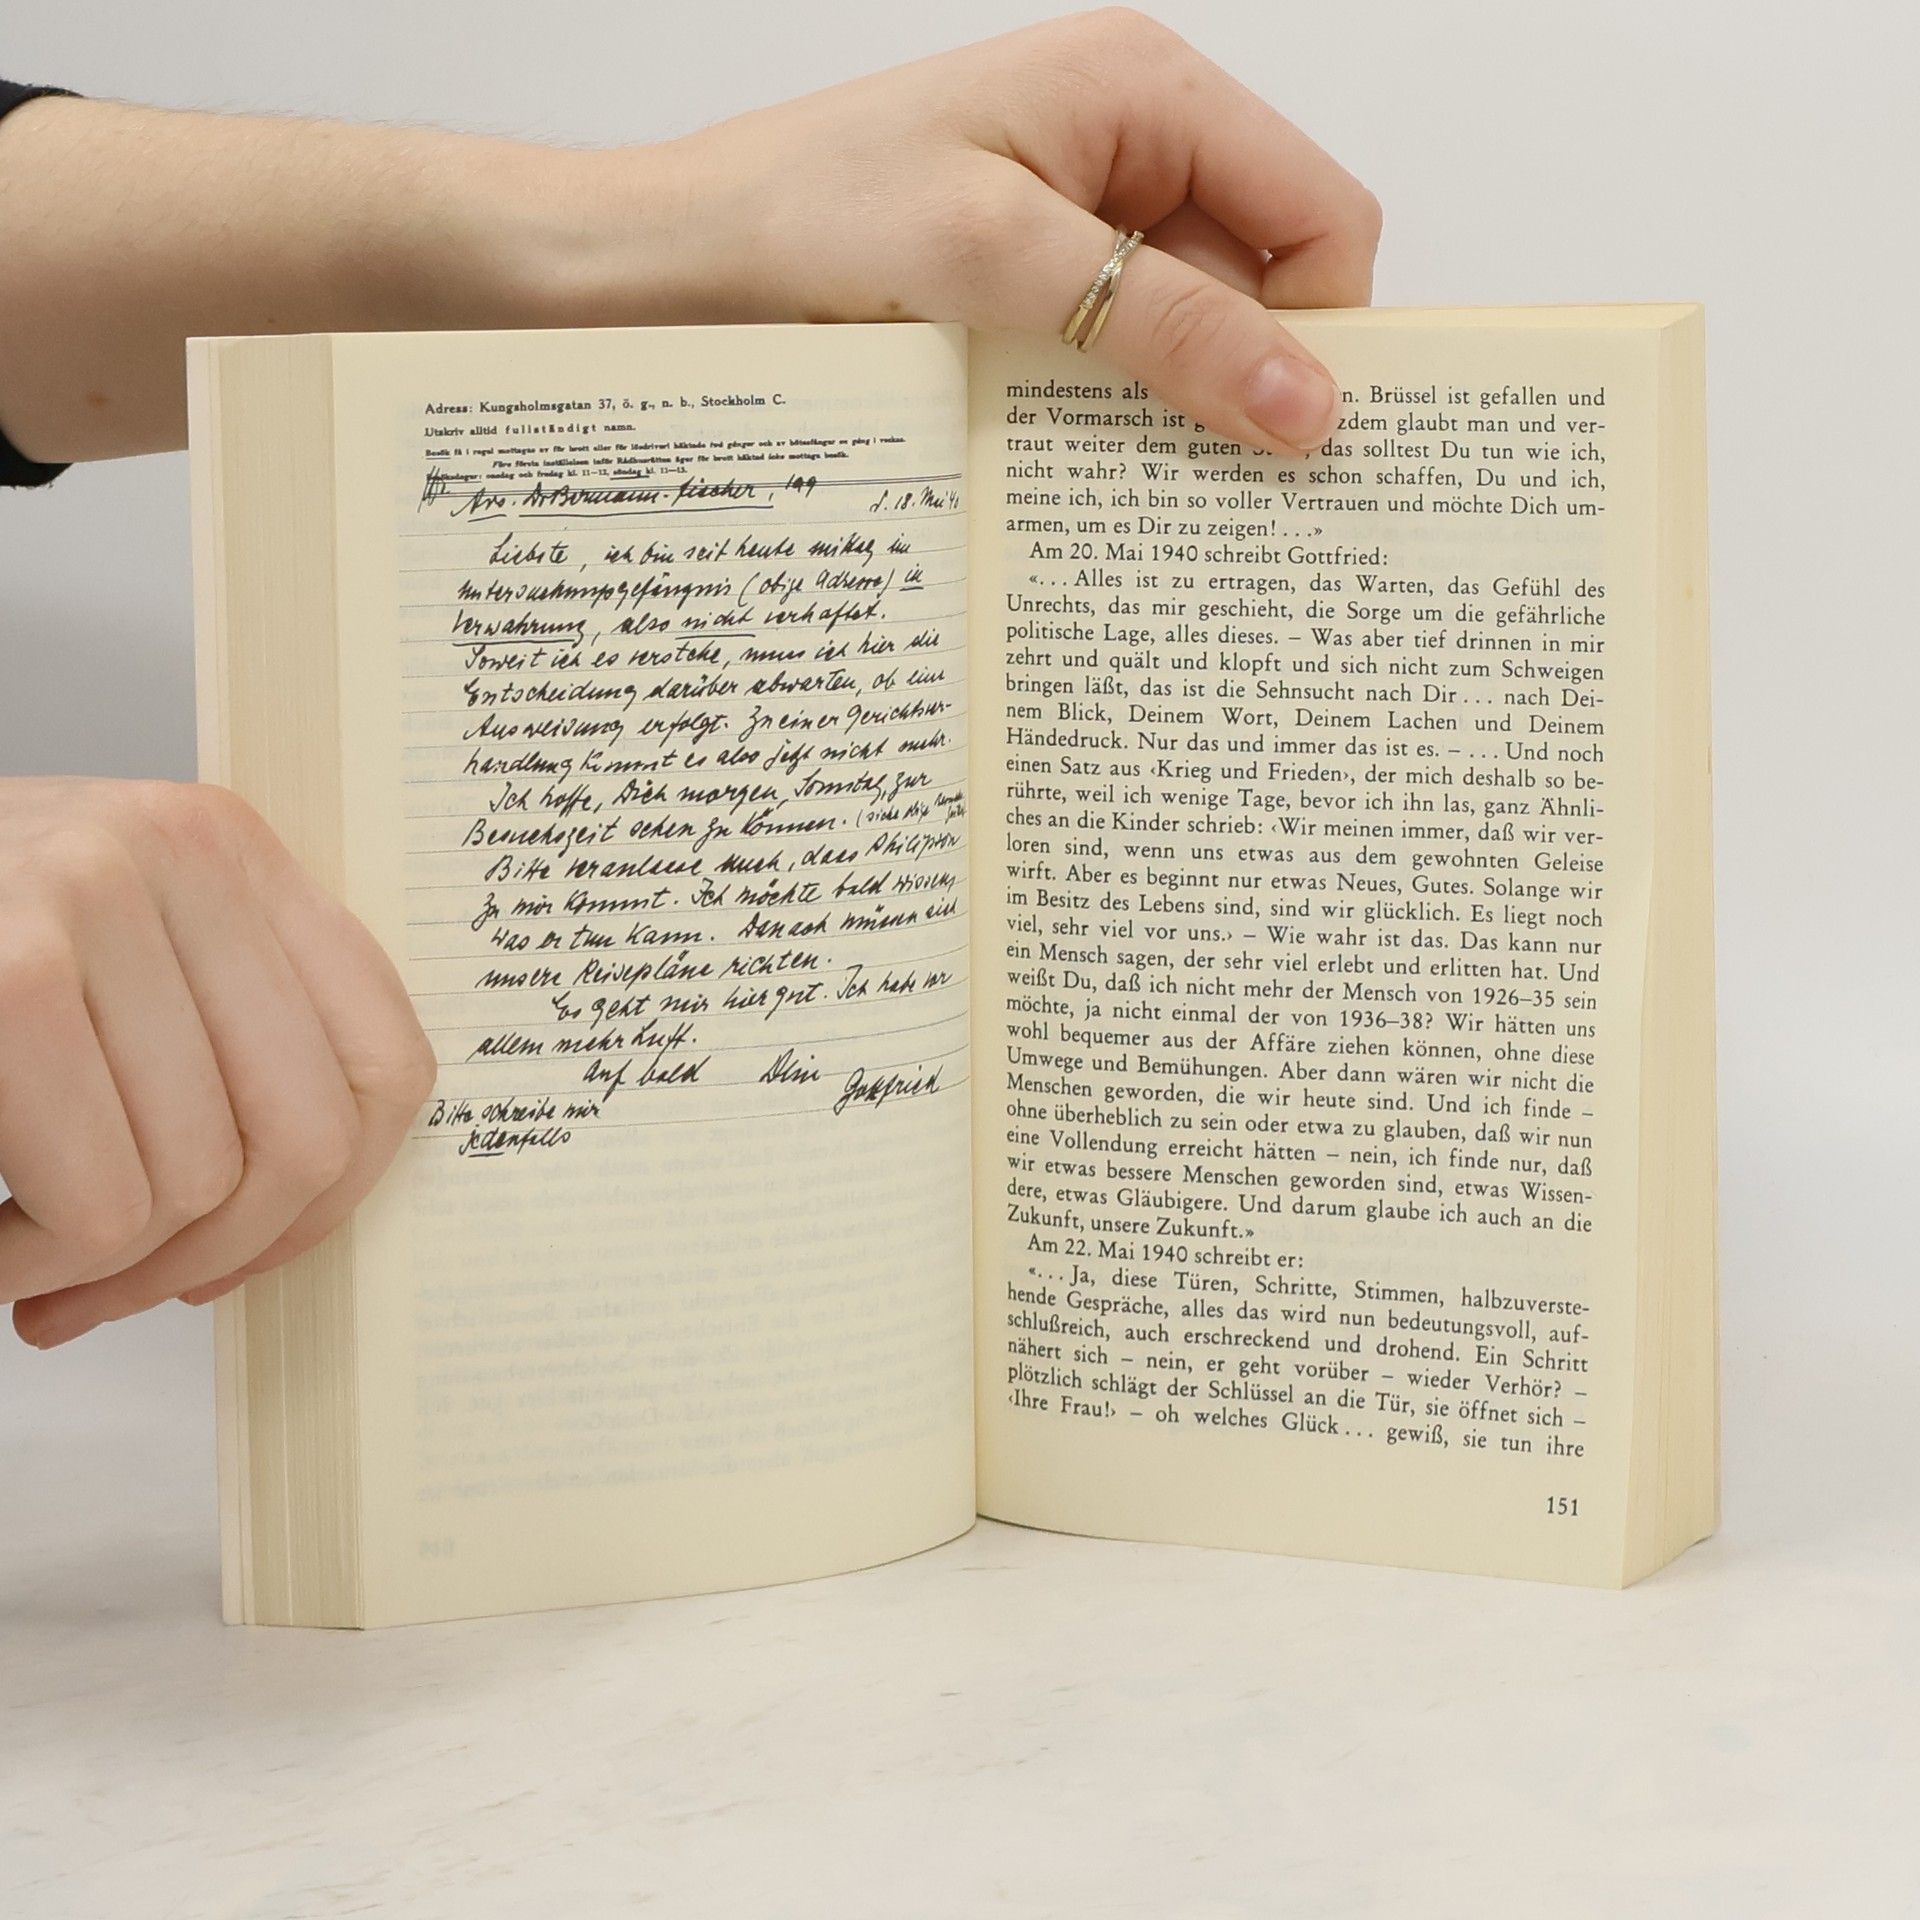 Adress: Kungsholmsgatan 37, ö. g., n. b., Stockholm C.
Utskriv alltid fullständigt namn.
Besök få i regel mottagas av för brott eller för lösdriveri häktade två gånger och av bötesfångar en gång i veckan.
Före första inställelsen inför Rådhusrätten äger för brott häktad icke mottaga besök.
onsdag och fredag kl. 11—12, söndag kl. 11—13.
Avs. Dr Bermann-Fischer, 199
d. 18. Mai 40
Liebste, ich bin seit heute mittag im
Untersuchungsgefängnis (obige Adresse) in
Verwahrung, also nicht verhaftet.
Soweit ich es verstehe, muss ich hier die
Entscheidung darüber abwarten, ob eine
Ausweisung erfolgt. Zu einer Gerichtsver-
handlung kommt es also jetzt nicht mehr.
Ich hoffe, Dich morgen, Sonntag, zur
Besuchszeit sehen zu können. (siehe obige
Bitte veranlasse auch, dass Philipson
zu mir kommt. Ich möchte bald wissen,
was er tun kann. Danach müssen sich
unsere Reisepläne richten.
Es geht mir hier gut. Ich habe vor
allem mehr Luft.
Auf bald Dein
Gottfried
Bitte schreibe mir
jedenfalls
mindestens als n. Brüssel ist gefallen und
der Vormarsch ist zdem glaubt man und ver-
traut weiter dem guten , das solltest Du tun wie ich,
nicht wahr? Wir werden es schon schaffen, Du und ich,
meine ich, ich bin so voller Vertrauen und möchte Dich um-
armen, um es Dir zu zeigen! . . .»
Am 20. Mai 1940 schreibt Gottfried:
«. . . Alles ist zu ertragen, das Warten, das Gefühl des
Unrechts, das mir geschieht, die Sorge um die gefährliche
politische Lage, alles dieses. – Was aber tief drinnen in mir
zehrt und quält und klopft und sich nicht zum Schweigen
bringen läßt, das ist die Sehnsucht nach Dir . . . nach Dei-
nem Blick, Deinem Wort, Deinem Lachen und Deinem
Händedruck. Nur das und immer das ist es. – . . . Und noch
einen Satz aus ‹Krieg und Frieden›, der mich deshalb so be-
rührte, weil ich wenige Tage, bevor ich ihn las, ganz Ähnli-
ches an die Kinder schrieb: ‹Wir meinen immer, daß wir ver-
loren sind, wenn uns etwas aus dem gewohnten Geleise
wirft. Aber es beginnt nur etwas Neues, Gutes. Solange wir
im Besitz des Lebens sind, sind wir glücklich. Es liegt noch
viel, sehr viel vor uns.› – Wie wahr ist das. Das kann nur
ein Mensch sagen, der sehr viel erlebt und erlitten hat. Und
weißt Du, daß ich nicht mehr der Mensch von 1926–35 sein
möchte, ja nicht einmal der von 1936–38? Wir hätten uns
wohl bequemer aus der Affäre ziehen können, ohne diese
Umwege und Bemühungen. Aber dann wären wir nicht die
Menschen geworden, die wir heute sind. Und ich finde –
ohne überheblich zu sein oder etwa zu glauben, daß wir nun
eine Vollendung erreicht hätten – nein, ich finde nur, daß
wir etwas bessere Menschen geworden sind, etwas Wissen-
dere, etwas Gläubigere. Und darum glaube ich auch an die
Zukunft, unsere Zukunft.»
Am 22. Mai 1940 schreibt er:
«. . . Ja, diese Türen, Schritte, Stimmen, halbzuverste-
hende Gespräche, alles das wird nun bedeutungsvoll, auf-
schlußreich, auch erschreckend und drohend. Ein Schritt
nähert sich – nein, er geht vorüber – wieder Verhör? –
plötzlich schlägt der Schlüssel an die Tür, sie öffnet sich –
‹Ihre Frau!› – oh welches Glück . . . gewiß, sie tun ihre
151